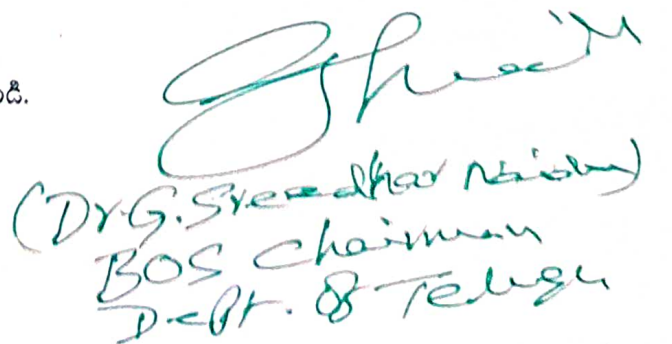 ండి.
(Dr. G. Sreedhar Naidu)
BOS Chairman
Dept. of Telugu